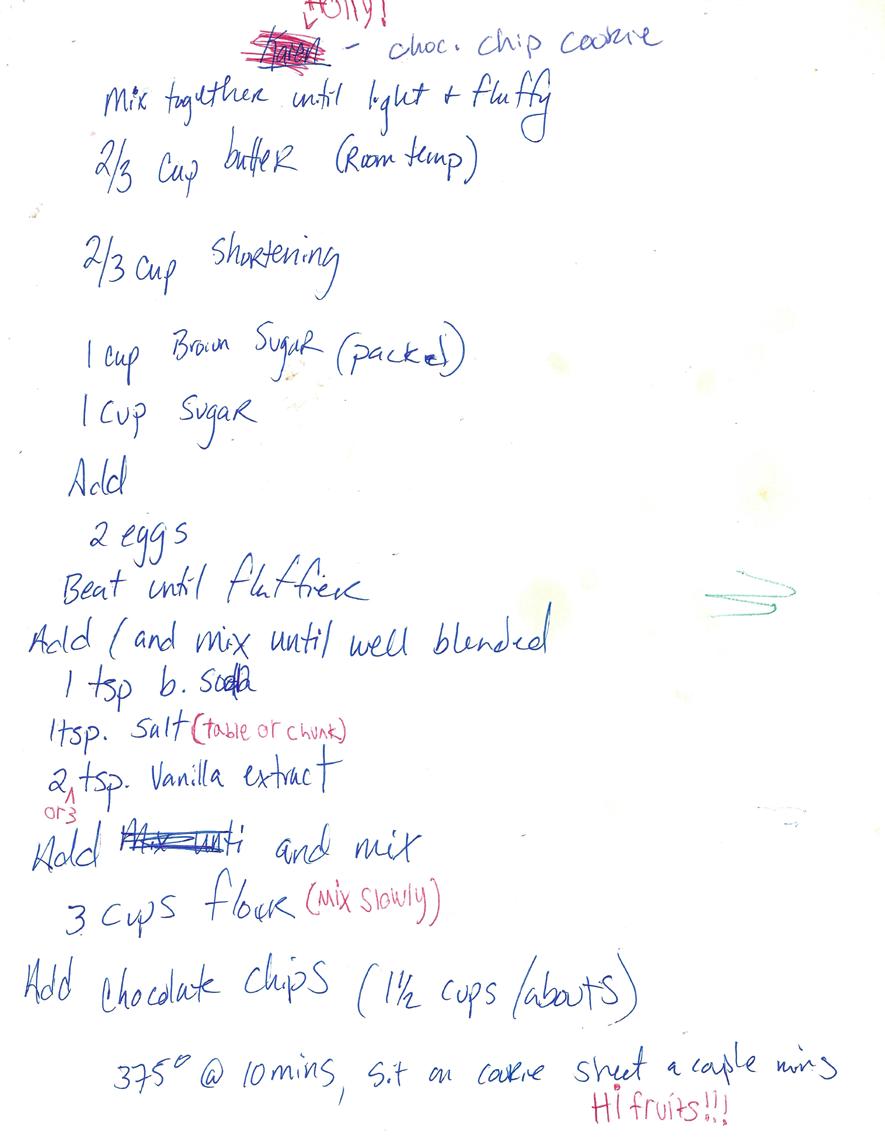 Holly!
Karen - choc. chip cookie
Mix together until light + fluffy
2/3 cup butter (Room temp)
2/3 cup shortening
1 cup Brown Sugar (packed)
1 cup Sugar
Add
2 eggs
Beat until fluffier
Add (and mix until well blended
1 tsp b. soda
1 tsp. Salt (table or chunk)
2 ^ tsp. Vanilla extract
or 3
Add Mix unti and mix
3 cups flour (Mix Slowly)
Add chocolate chips (1 1/2 cups /abouts)
375° @ 10 mins, sit on cookie sheet a couple mins
Hi fruits!!!